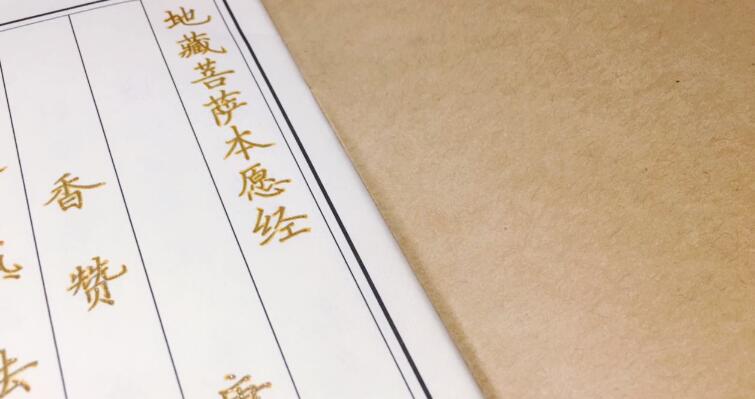 地藏菩萨本愿经
香赞
法